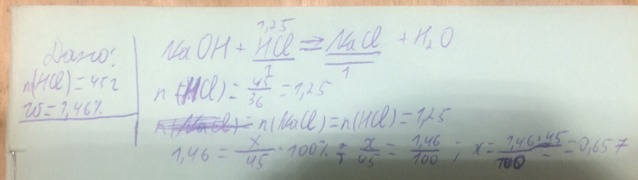 Дано:
m(HCl)=45г
W=1,46%
1,25
NaOH + HCl = NaCl + H₂O
1 1
n(HCl) = 45/36 = 1,25
n(NaCl) = n(NaCl) = n(HCl) = 1,25
1,46 = x/45 · 100% ; x/45 = 1,46/100 ; x = 1,46·45/100 = 0,657